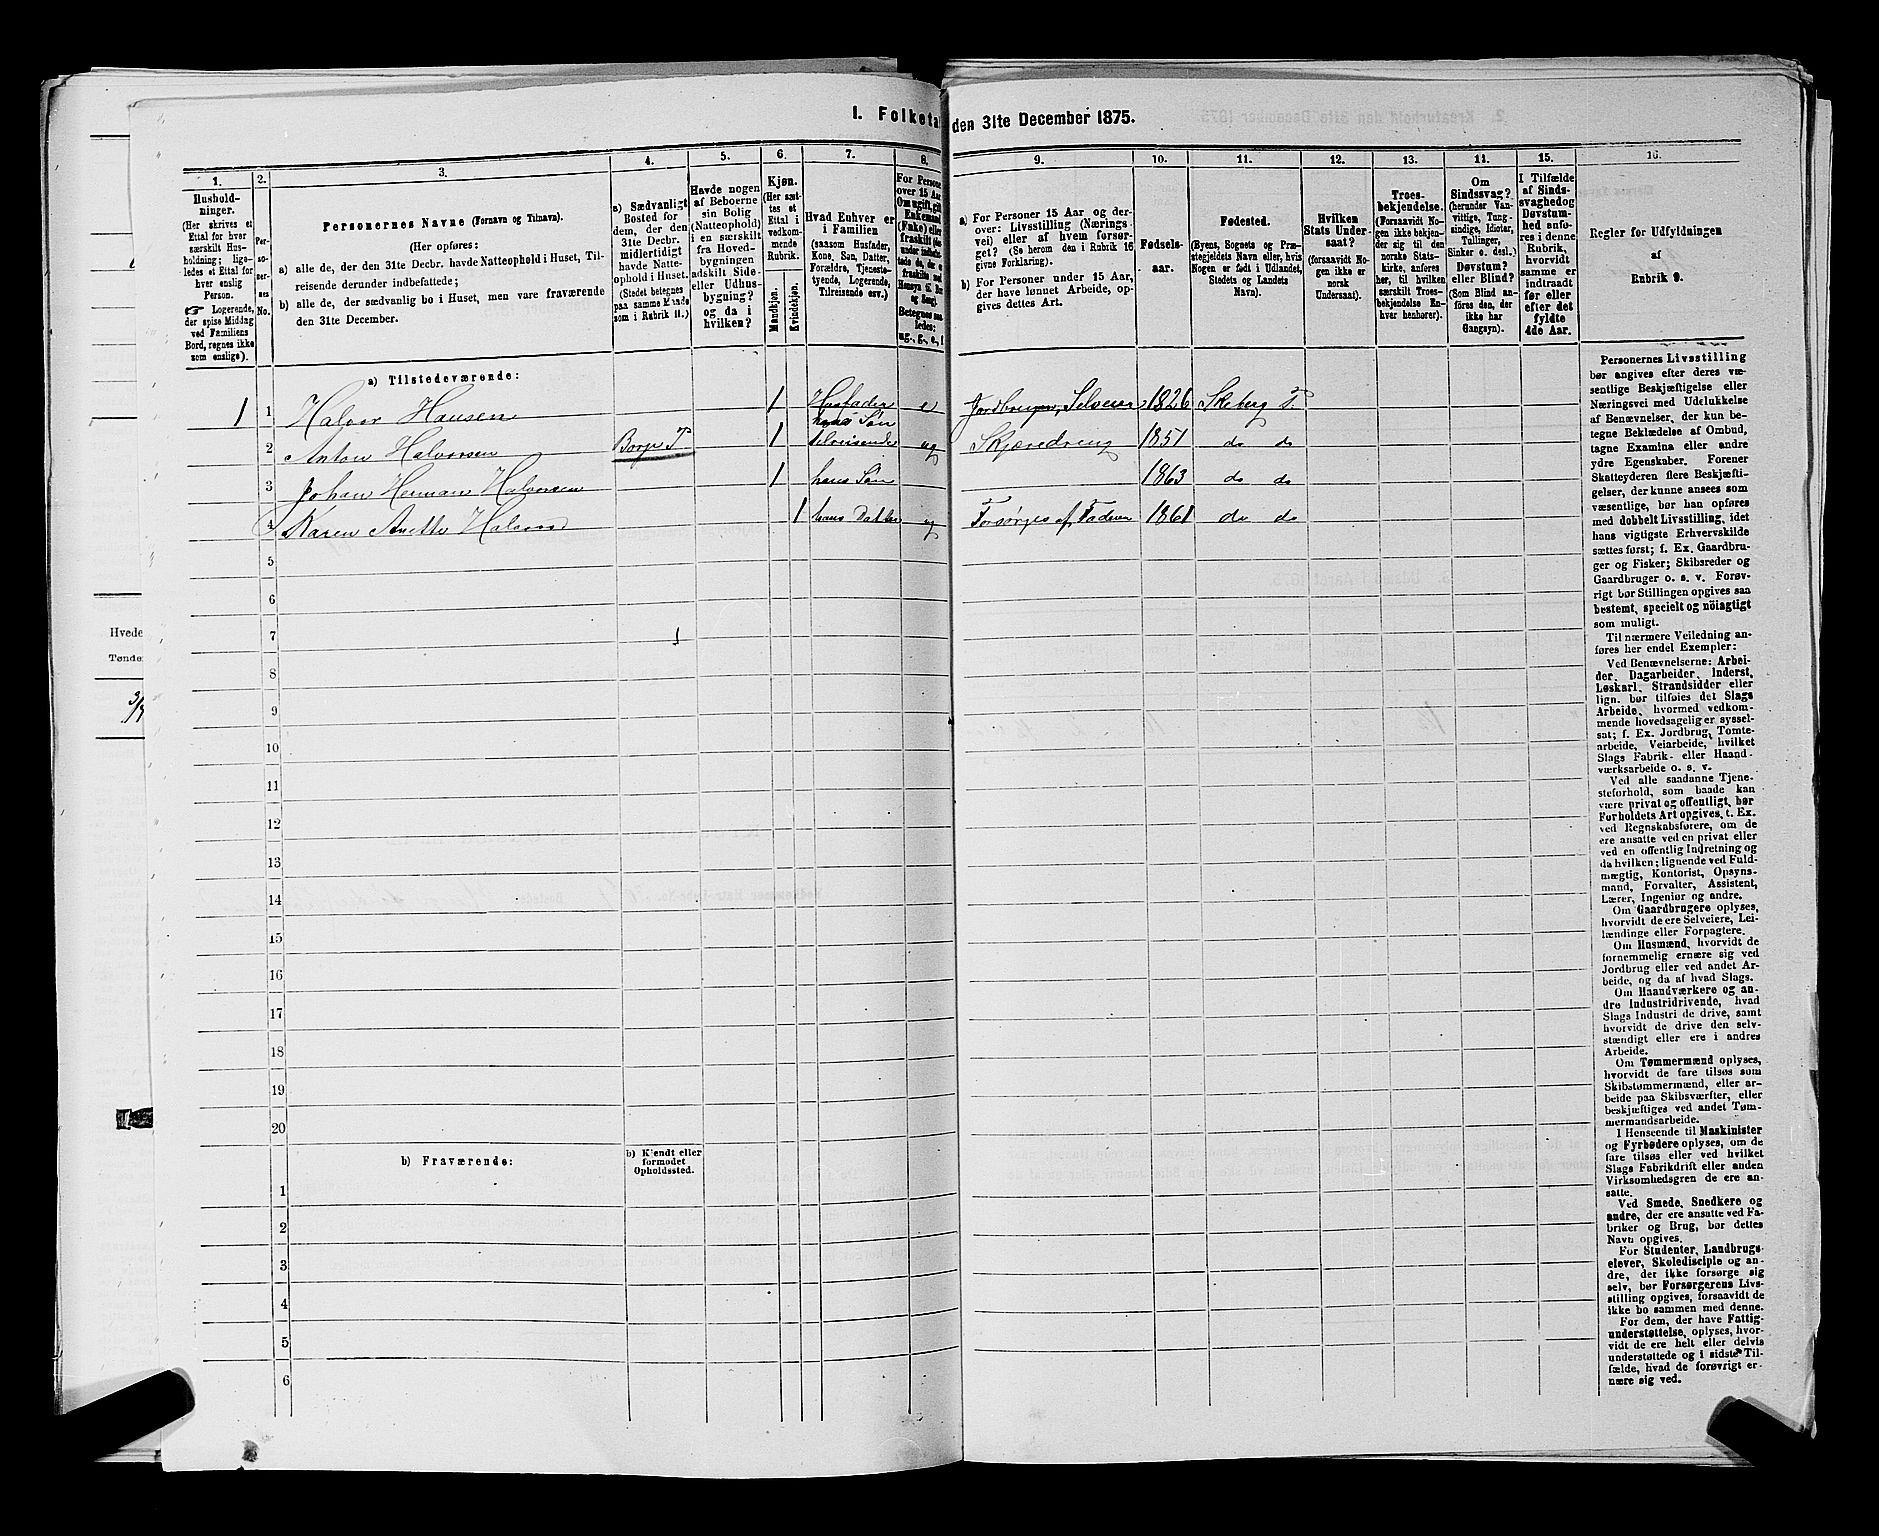 I. Folketal den 31te December 1875.
1.
Hushold-
ninger.
(Her skrives et
Ettal for hver
særskilt Hus-
holdning; lige-
ledes et Ettal for
hver enslig
Person.
☞ Logerende,
der spise Middag
ved Familiens
Bord, regnes ikke
som enslige).
2.
Per-
soner-
nes
No.
3.
Personernes Navne (Fornavn og Tilnavn).
(Her opføres:
a) alle de, der den 31te Decbr. havde Natteophold i Huset, Til-
reisende derunder indbefattede;
b) alle de, der sædvanlig bo i Huset, men vare fraværende
den 31te December.
4.
a) Sædvanligt
Bosted for
dem, der den
31te Decbr.
midlertidigt
havde Natte-
ophold i Huset.
(Stedet betegnes
paa samme Maade
som i Rubrik 11.)
5.
Havde nogen
af Beboerne
sin Bolig
(Natteophold)
i en særskilt
fra Hoved-
bygningen
adskilt Side-
eller Udhus-
bygning?
og da i
hvilken?
6.
Kjøn.
(Her sæt-
tes et
Ettal i
vedkom-
mende
Rubrik.
Mandkjøn.
Kvindekjøn.
7.
Hvad Enhver er
i Familien
(saasom Husfader,
Kone, Søn, Datter,
Forældre, Tjeneste-
tyende, Logerende,
Tilreisende osv.)
8.
For Persone
over 15 Aar
Om ugift, gift
Enkemand
(Enke) eller
fraskilt
Betegnes saa-
ledes:
ug., g., e., f.
9.
a) For Personer 15 Aar og der-
over: Livsstilling (Nærings-
vei) eller af hvem forsør-
get? (Se herom den i Rubrik 16
givne Forklaring).
b) For Personer under 15 Aar,
der have lønnet Arbeide, op-
gives dettes Art.
10.
Fødsels-
aar.
11.
Fødested.
(Byens, Sognets og Præ-
stegjeldets Navn eller, hvis
Nogen er født i Udlandet,
Stedets og Landets
Navn).
12.
Hvilken
Stats Under-
saat?
(forsaavidt No-
gen ikke er
norsk
Undersaat).
13.
Troes-
bekjendelse.
(Forsaavidt No-
gen ikke bekjen-
der sig til den
norske Stats-
kirke, anføres
her, til hvilken
særskilt Troes-
bekjendelse En-
hver henhører).
14.
Om
Sindssvag?
(herunder Van-
vittige, Tung-
sindige, Idioter,
Tullinger,
Sinker o. desl.)
Døvstum?
eller Blind?
(Som Blind an-
føres den, der
ikke har
Gangsyn).
15.
I Tilfælde
af Sinds-
svaghed og
Døvstum-
hed anfø-
res i denne
Rubrik,
hvorvidt
samme er
indtraadt
før eller
efter det
fyldte
4de Aar.
16.
Regler for Udfyldningen
af
Rubrik 9.
a) Tilstedeværende:
1 1 Halvor Hansen 1 Husfader e Jordbruger, Selveier 1826 Skeberg P.
2 Anton Halvorsen Borge P 1 hans Søn tilreisende ug Skjæredreng 1851 do do
3 Johan Herman Halvorsen 1 hans Søn 1863 do do
4 Karen Anette Halvors 1 hans Datter ug Forsørges af Faderen 1861 do do
5
6
7
8
9
10
11
12
13
14
15
16
17
18
19
20
b) Fraværende:
b) Kjendt eller
formodet
Opholdssted.
1
2
3
4
5
6
Personernes Livsstilling
bør angives efter deres væ-
sentlige Beskjæftigelse eller
Næringsvei med Udelukkelse
af Benævnelser, der kun be-
tegne Beklædelse af Ombud,
tagne Examina eller andre
ydre Egenskaber. Forener
Skatteyderen flere Beskjæfti-
gelser, der kunne ansees som
væsentlige, bør han opføres
med dobbelt Livsstilling, idet
hans vigtigste Erhvervskilde
sættes først; f. Ex. Gaardbru-
ger og Fisker; Skibsreder og
Gaardbruger o. s. v. Forøv-
rigt bør Stillingen opgives saa
bestemt, specielt og nöiagtigt
som muligt.
Til nærmere Veiledning an-
føres her endel Exempler:
Ved Benævnelserne: Arbei-
der, Dagarbeider, Inderst,
Løskarl, Strandsidder eller
lign. bør tilføies det Slags
Arbeide, hvormed vedkom-
mende hovedsagelig er syssel-
sat; f. Ex. Jordbrug, Tomte-
arbeide, Veiarbeide, hvilket
Slags Fabrik- eller Haand-
værksarbeide o. s. v.
Ved alle saadanne Tjene-
steforhold, som baade kan
være privat og offentligt, bør
Forholdets Art opgives, t. Ex.
ved Regnskabsførere, om de
ere ansatte ved en privat eller
ved en offentlig Indretning og
da hvilken; lignende ved Fuld-
mægtig, Kontorist, Opsyns-
mand, Forvalter, Assistent,
Lærer, Ingeniør og andre.
Om Gaardbrugere oplyses,
hvorvidt de ere Selveiere, Lei-
lændinge eller Forpagtere.
Om Husmænd, hvorvidt de
fornemmelig ernære sig ved
Jordbrug eller ved andet Ar-
beide, og da af hvad Slags.
Om Haandværkere og an-
dre Industridrivende, hvad
Slags Industri de drive, samt
hvorvidt de drive den selv-
stændigt eller ere i andres
Arbeide.
Om Tømmermænd oplyses,
hvorvidt de fare tilsøs som
Skibstømmermænd, eller ar-
beide paa Skibsværfter, eller
beskjæftiges ved andet Tøm-
mermandsarbeide.
I Henseende til Maskinister
og Fyrbødere oplyses, om de
fare tilsøs eller ved hvilket
Slags Fabrikdrift eller anden
Virksomhedsgren de ere an-
satte.
Ved Smede, Snedkere og
andre, der ere ansatte ved Fa-
briker og Brug, bør dettes
Navn opgives.
For Studenter, Landbrugs-
elever, Skoledisciple og an-
dre, der ikke forsørge sig
selv, bør Forsørgerens Livs-
stilling opgives, forsaavidt de
ikke bo sammen med denne.
For dem, der have Fattig-
understøttelse, oplyses, hvor-
vidt de ere helt eller delvis
understøttede og i sidste Til-
fælde, hvad de forøvrigt er-
nære sig ved.
Hvede
Tønder